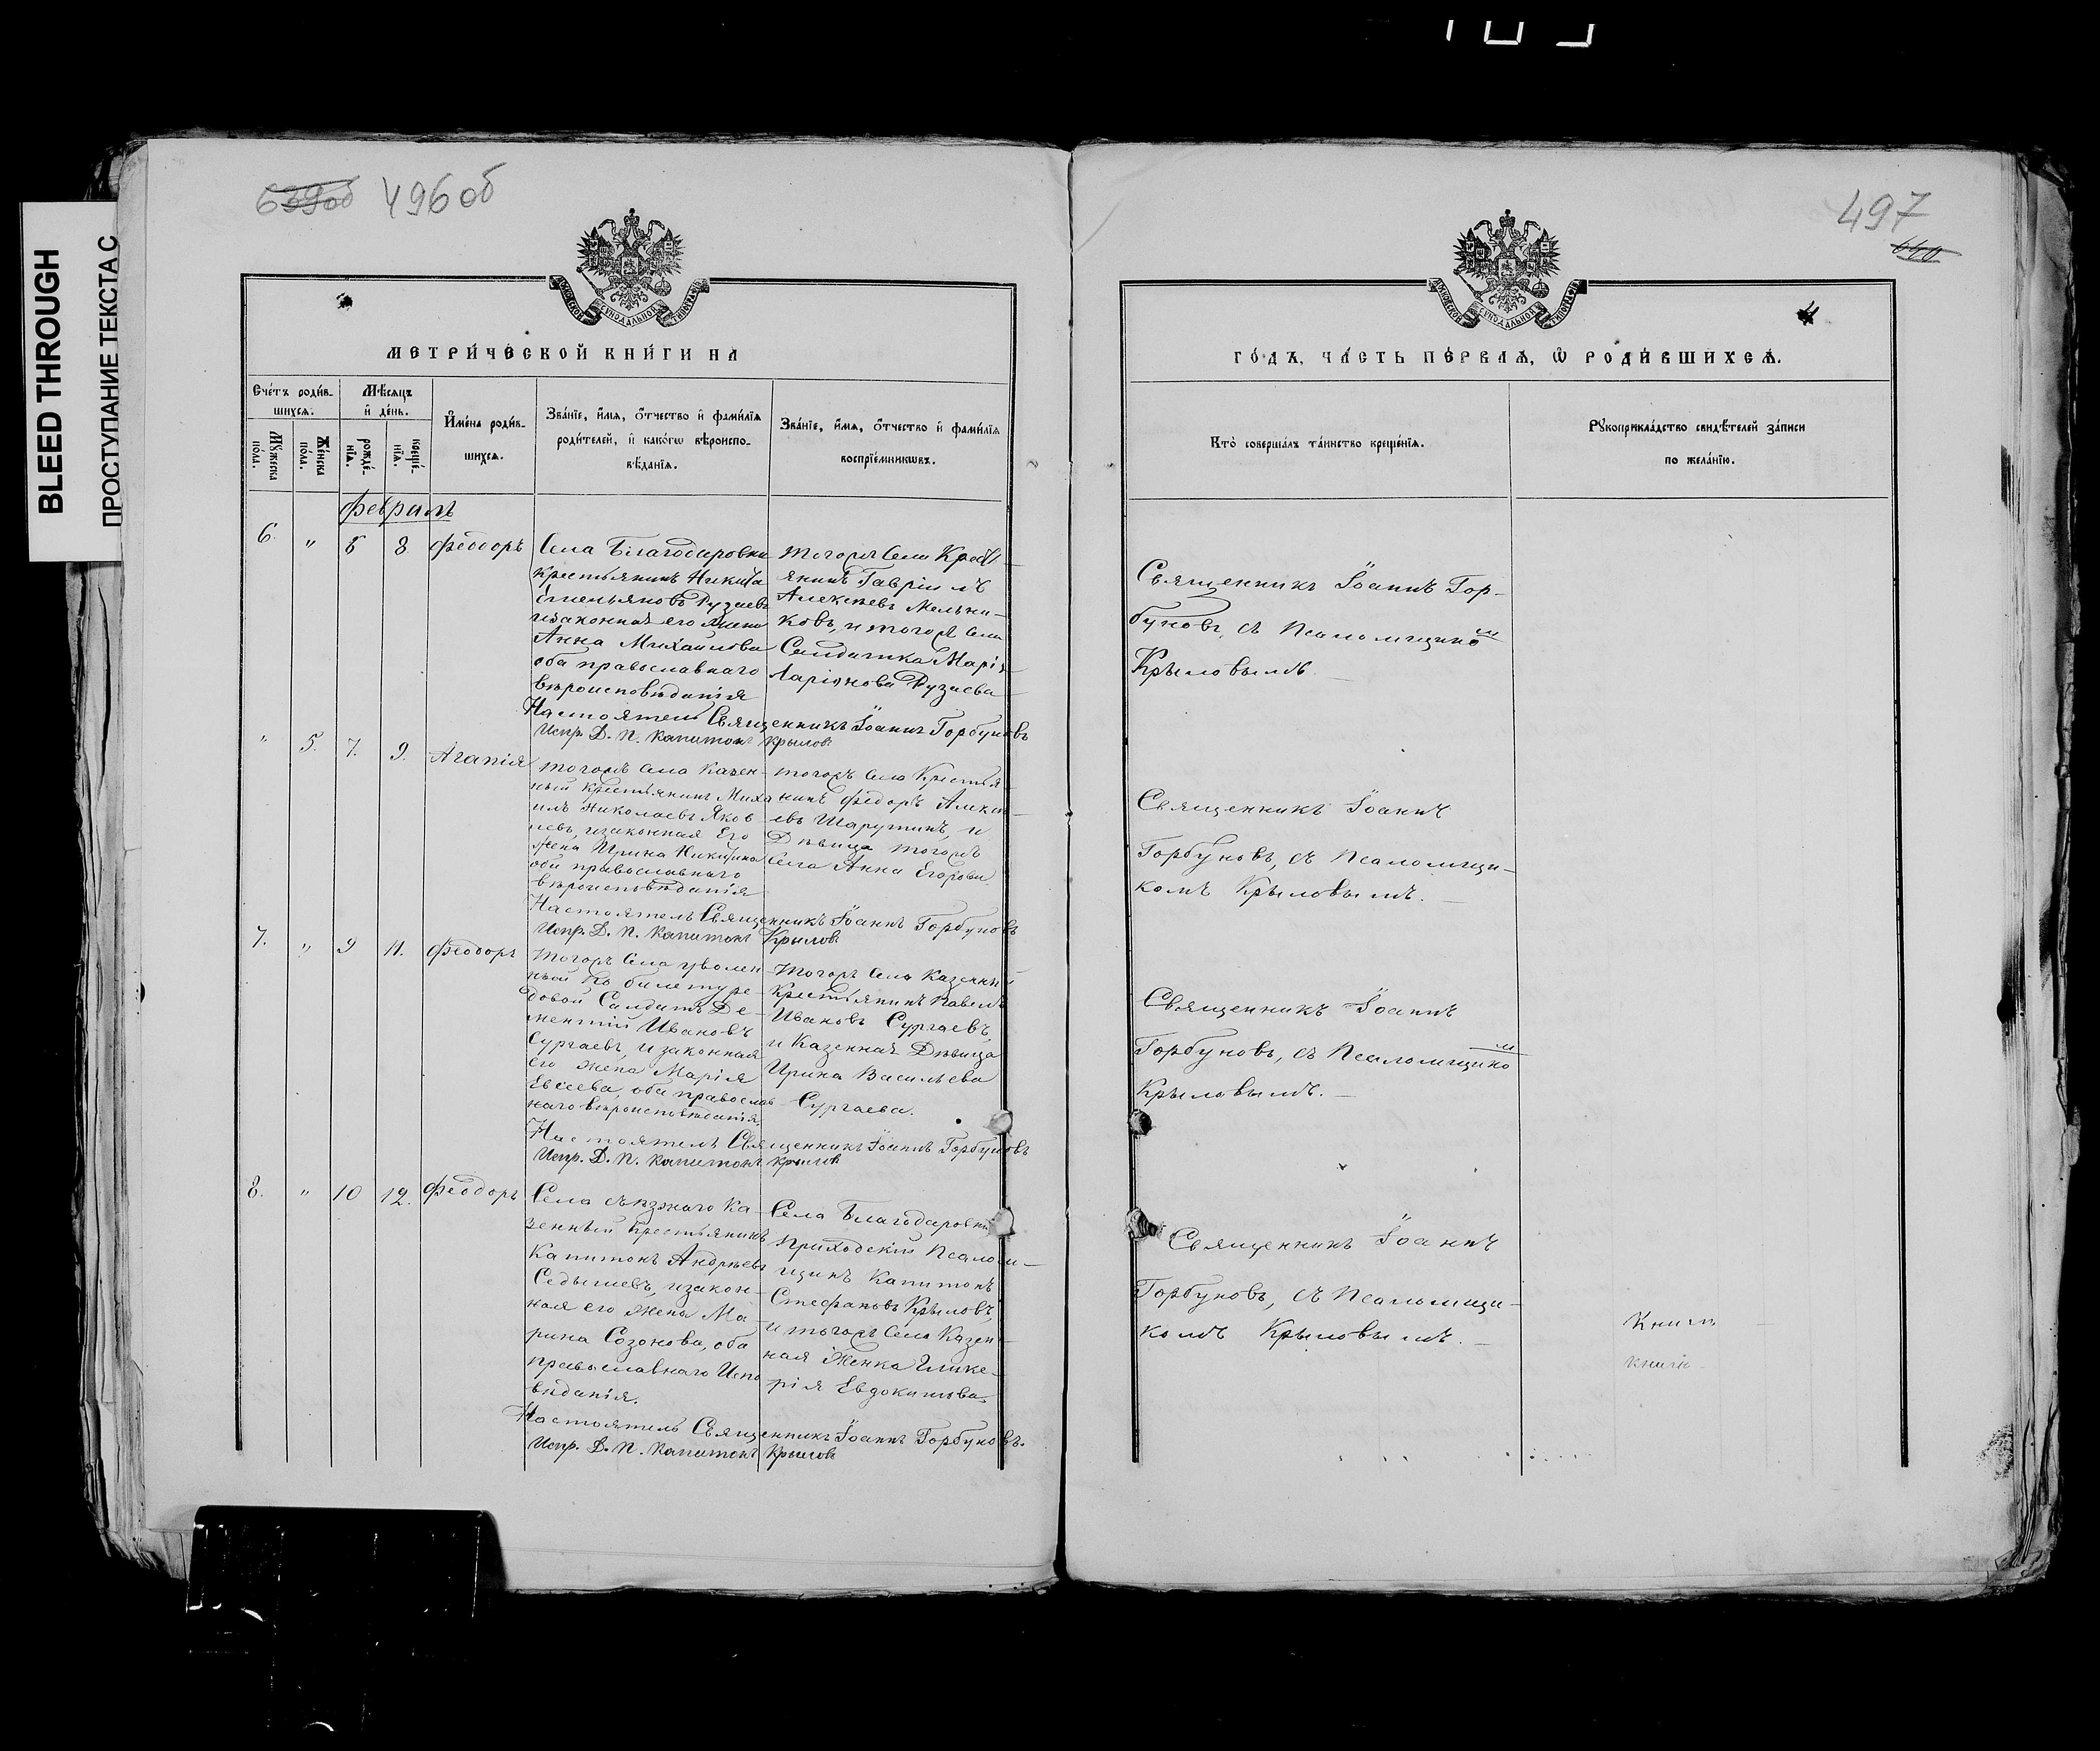 BLEED THROUGH
ПРОСТУПАНИЕ ТЕКСТА С
639об 496об
МЕТРИ́ЧЕСКОЙ КНИ́ГИ НА
Сче́тъ роди́в-
шихсѧ.
Мѣ́сѧцъ
и҆ де́нь.
И҆мена̀ роди́в-
шихсѧ.
Зва́нїе, и҆́мѧ, ѻ҆́тчество и҆ фами́лїѧ
роди́телей, и҆ како́гѡ вѣроиспо-
вѣ́данїѧ.
Зва́нїе, и҆́мѧ, ѻ҆́тчество и҆ фами́лїѧ
воспрїе́мникѡвъ.
Мꙋ́жеска
по́ла.
Же́нска
по́ла.
рожде́-
нїѧ.
креще́-
нїѧ.
Февраль
6. " 5 8 Феодоръ
Села Благодаровки
крестьянинъ Никита
Емельяновъ Рузаевъ
изаконная его жена
Анна Михайлова
оба православнаго
вѣроисповѣданія
тогожъ Села Крестя
янинъ Гавріилъ
Алексѣевъ Мельни-
ковъ, и тогожъ Села
Салдатка Марія
Ларіонова Рузаева
Настоятель Священникъ Іоаннъ Горбуновъ
Испр. Д. П. Капитонъ Крылов
" 5. 7. 9. Агапія
тогожъ Села Казен-
ный Крестьянинъ Миха
илъ Николаевъ Яков-
левъ, изаконная Его
Жена Ирина Никитина
оби православнаго
вѣроисповѣданія
тогожъ Села Крестья
нинъ Федоръ Алексѣ-
евъ Шарутинъ, и
Дѣвица тогожъ
Села Анна Егорова
Настоятель Священникъ Іоаннъ Горбуновъ
Испр. Д. П. Капитонъ Крылов
7. " 9 11. Феодоръ
Тогожъ Села уволен-
ный по билету ре-
довой Салдатъ Де-
ментій Ивановъ
Сургаевъ, изаконная
Его жена Марія
Евсеева, оба православ
наго вѣроисповѣданія,
Тогожъ Села Казенный
Крестьянинъ Павелъ
Ивановъ Сургаевъ,
и Казенная Дѣвица
Ирина Васильева
Сургаева.
Настоятель Священникъ Іоаннъ Горбуновъ
Испр. Д. П. Капитонъ Крылов
8. " 10 12. Феодоръ
Села съѣзжаго Ка-
зенный крестьянинъ
Капитонъ Андрѣевъ
Седышевъ, изакон-
ная его жена Ма-
рина Созонова, оба
православнаго Испо
вѣданія.
Села Благодаровки
Приходскій Псалом-
щикъ Капитонъ
Стефановъ Крыловъ,
и тогожъ Села Казен-
ная Женка Глике-
рія Евдокимова
Настоятель Священникъ Іоаннъ Горбуновъ.
Испр. Д. П. Капитонъ Крылов
497
640
ГО́ДЪ, ЧА́СТЬ ПЕ́РВАѦ, Ѡ҆ РОДИ́ВШИХСѦ.
Кто̀ соверша́лъ та́инство креще́нїѧ.
Рꙋкоприкла́дство свидѣ́телей за́писи
по жела́нїю.
Священникъ Іоаннъ Гор-
буновъ, съ Псаломщико м
Крыловымъ.
Священникъ Іоаннъ
Горбуновъ, съ Псаломщи-
комъ Крыловымъ.
Священникъ Іоаннъ
Горбуновъ, съ Псаломщико м
Крыловымъ.
Священникъ Іоаннъ
Горбуновъ, съ Псаломщи-
комъ Крыловымъ.